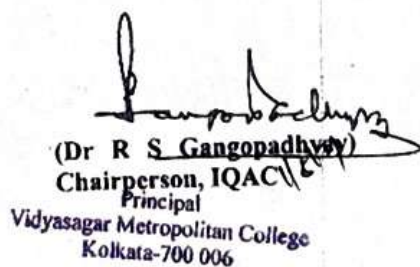 (Dr R S Gangopadhyay)
Chairperson, IQAC
Principal
Vidyasagar Metropolitan College
Kolkata-700 006